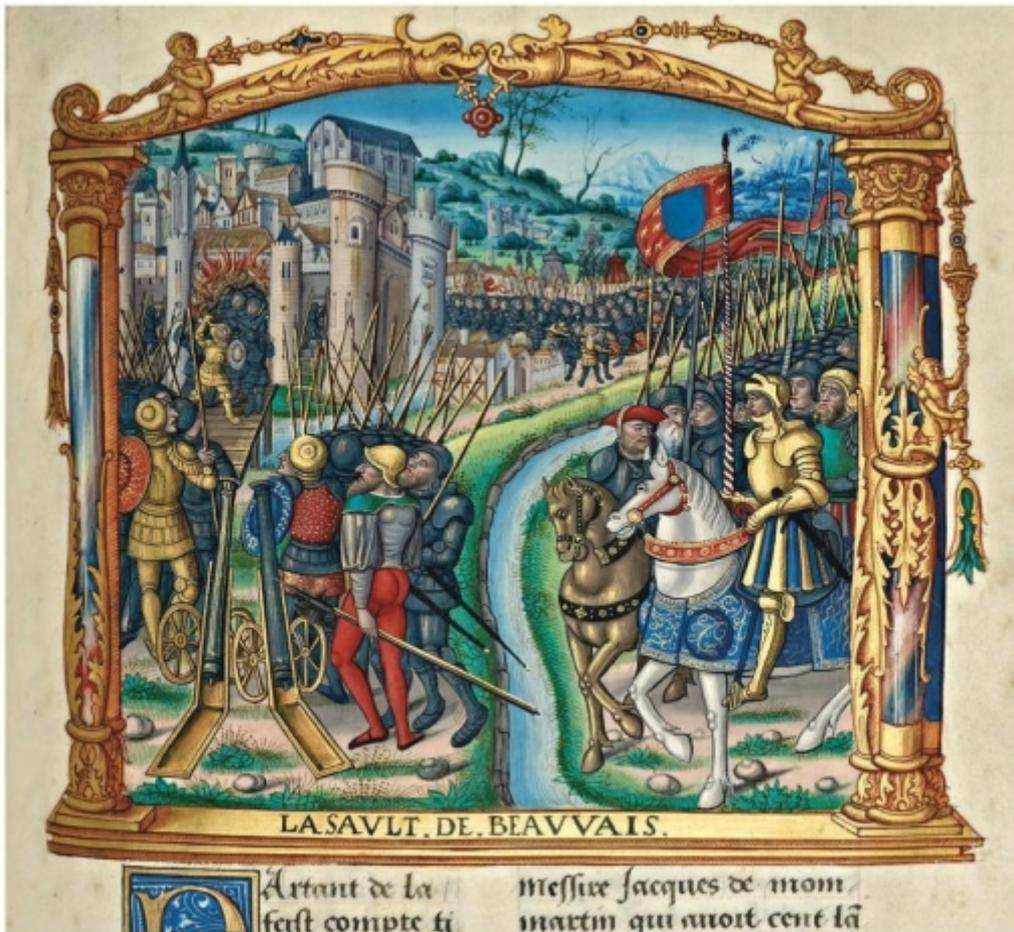 LASAVLT.DE.BEAVVAIS.
PArtant de la
feist compte ti
messire Jacques de mom
martin qui auoit cent lã